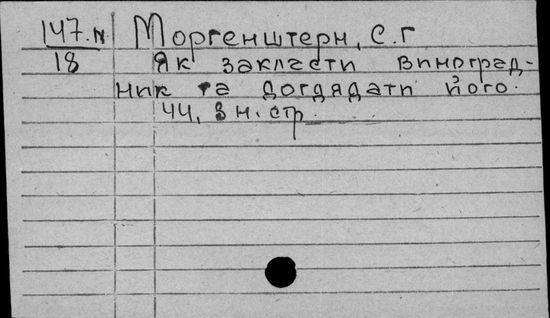 147.N Моргенштерн, С.Г
18 Як закласти виноград-
ник та догдядати його.
44, 3 н. стр.